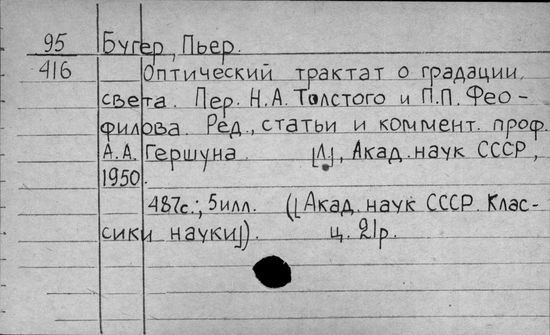 95 Бугер, Пьер.
416 Оптический трактат о градации
света. Пер. Н.А. Толстого и П.П. Фео-
филова. Ред., статьи и коммент. проф.
А.А. Гершуна. [Л], Акад. наук СССР,
1950.
487с.; 5илл. ([Акад. наук СССР. Клас-
сики науки]). ц. 21р.